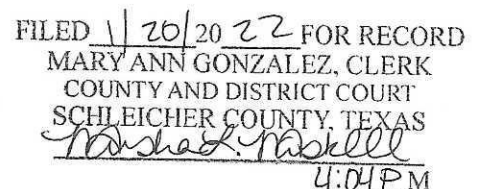 FILED 1/20/20 22 FOR RECORD
MARY ANN GONZALEZ, CLERK
COUNTY AND DISTRICT COURT
SCHLEICHER COUNTY, TEXAS
4:04 P M